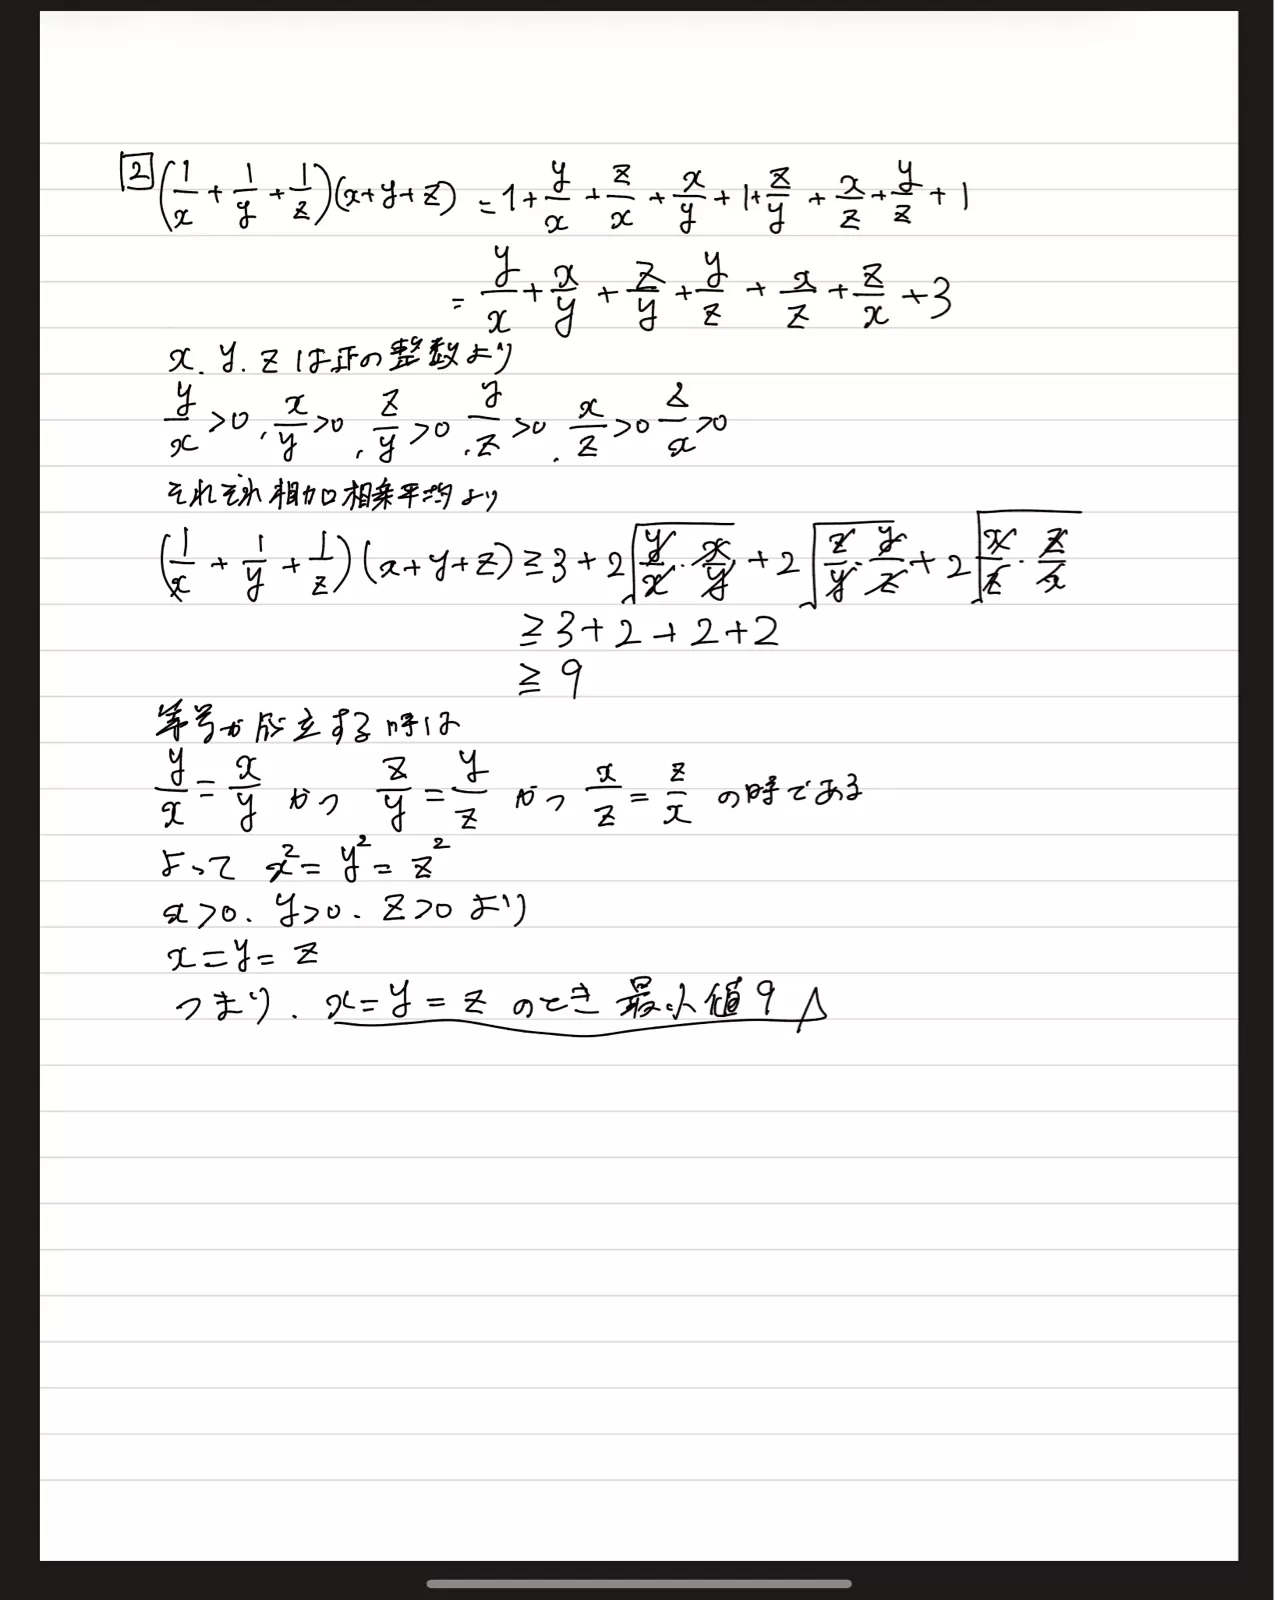 2 (1/x + 1/y + 1/z)(x+y+z) = 1 + y/x + z/x + x/y + 1 + z/y + x/z + y/z + 1
= y/x + x/y + z/y + y/z + x/z + z/x + 3
x, y, z は正の整数より
y/x >0, x/y >0, z/y >0, y/z >0, x/z >0 z/x >0
それぞれ相加相乗平均より
(1/x + 1/y + 1/z)(x+y+z) ≧ 3 + 2√(y/x・x/y) + 2√(z/y・y/z) + 2√(x/z・z/x)
≧ 3+2+2+2
≧ 9
等号が成立する時は
y/x = x/y かつ z/y = y/z かつ x/z = z/x の時である
よって x² = y² = z²
x>0、y>0、z>0 より
x=y=z
つまり、x=y=z のとき 最小値9